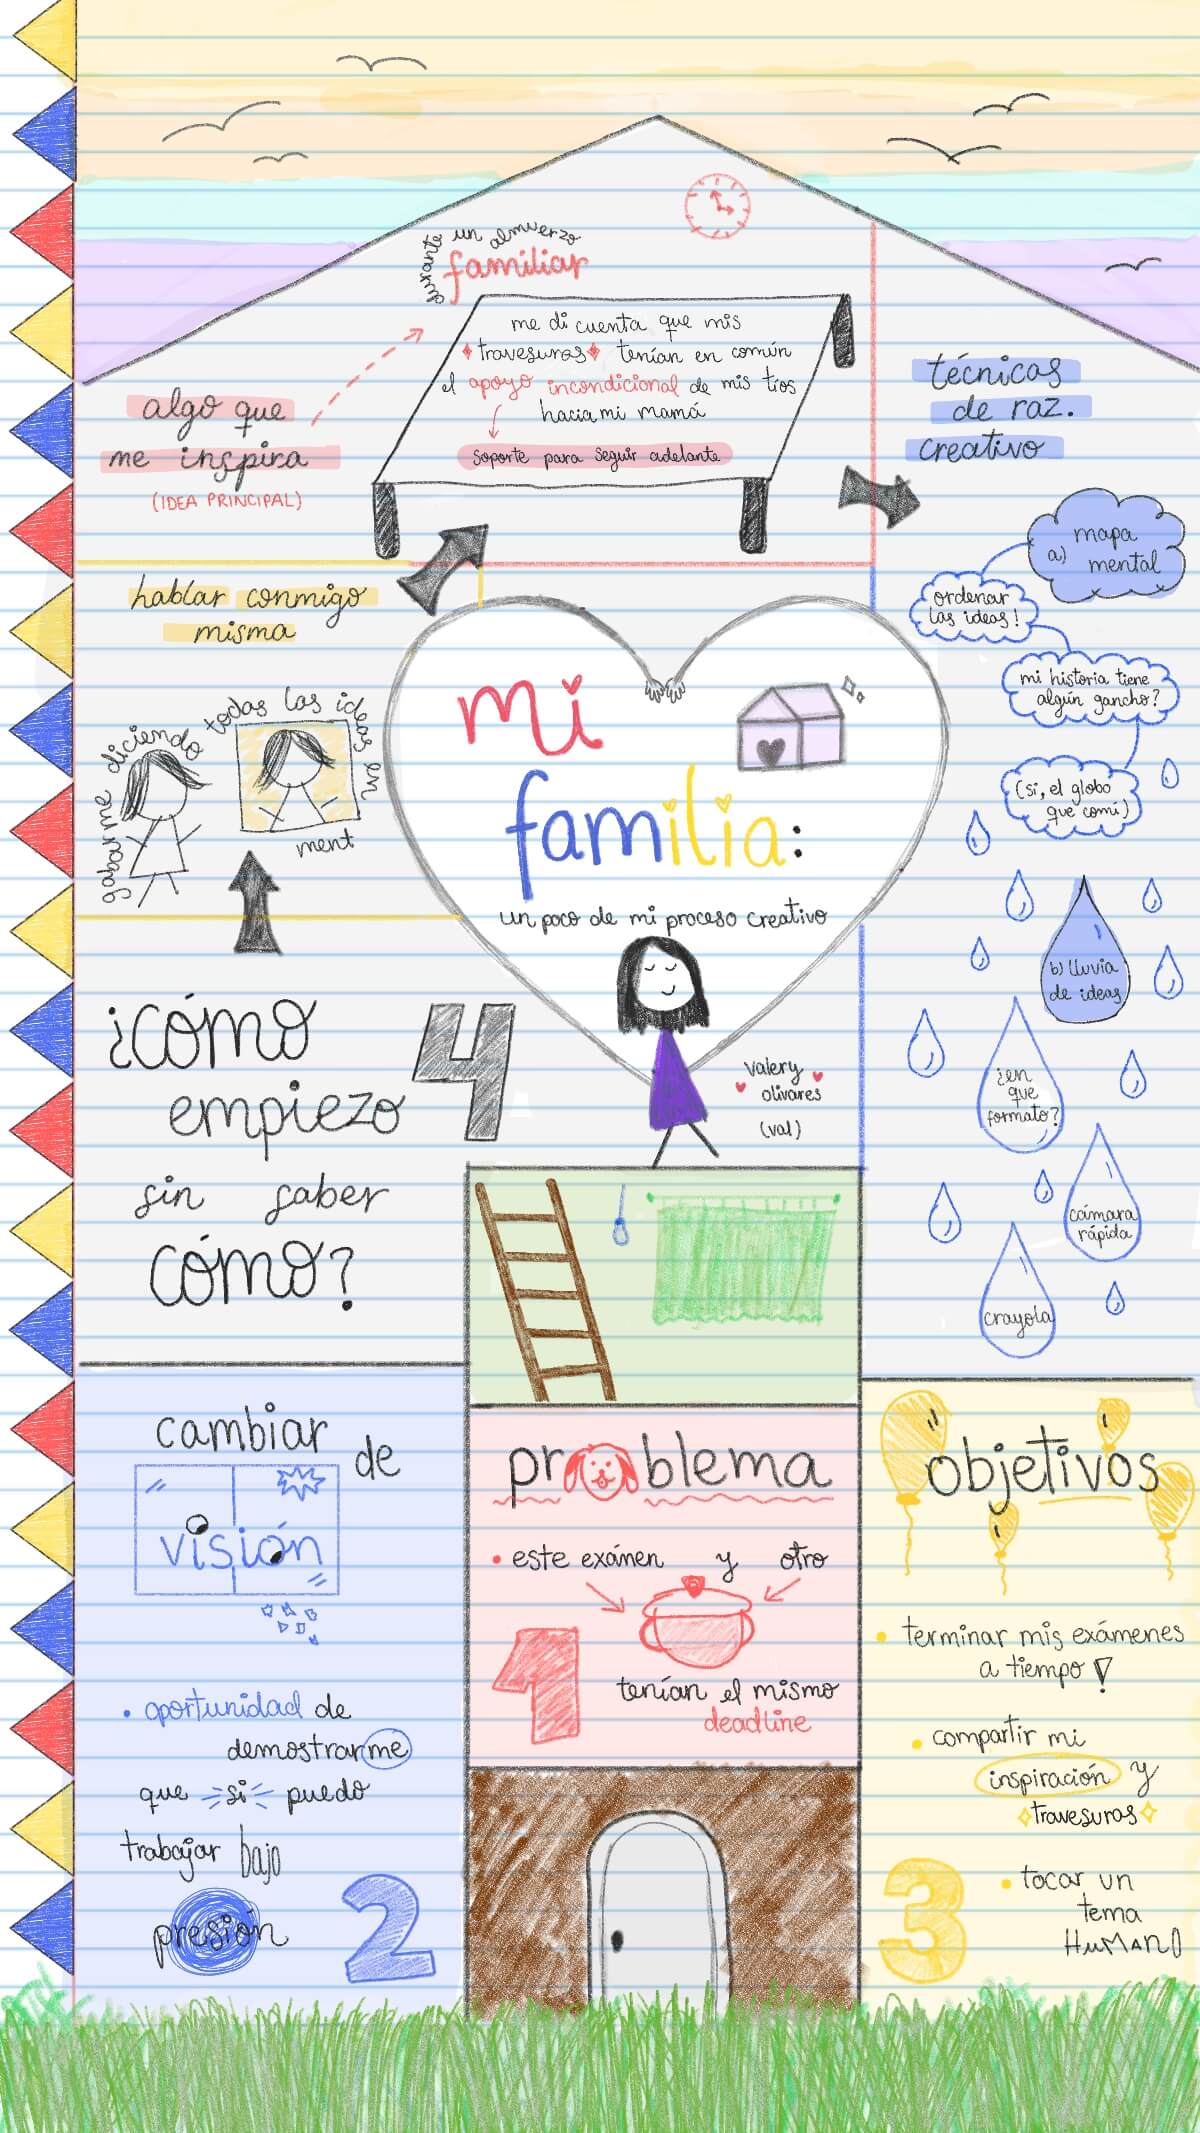 mi
familia:
un poco de mi proceso creativo
valery
olivares
(val)
problema
este exámen y otro
tenían el mismo
deadline
1
cambiar de
visión
oportunidad de
demostrarme
que si puedo
trabajar bajo
presión
2
objetivos
terminar mis exámenes
a tiempo!
compartir mi
inspiración y
travesuras
tocar un
tema
HuMANO
3
¿cómo
empiezo
sin saber
cómo?
4
hablar conmigo
misma
grabarme diciendo
todas las ideas en
ment
algo que
me inspira
(IDEA PRINCIPAL)
durante un almuerzo
familiar
me di cuenta que mis
travesuras tenían en común
el apoyo incondicional de mis tíos
hacia mi mamá
soporte para seguir adelante
técnicas
de raz.
creativo
a) mapa
mental
ordenar
las ideas!
mi historia tiene
algún gancho?
(si, el globo
que comí)
b) lluvia
de ideas
¿en
que
formato?
cámara
rápida
crayola